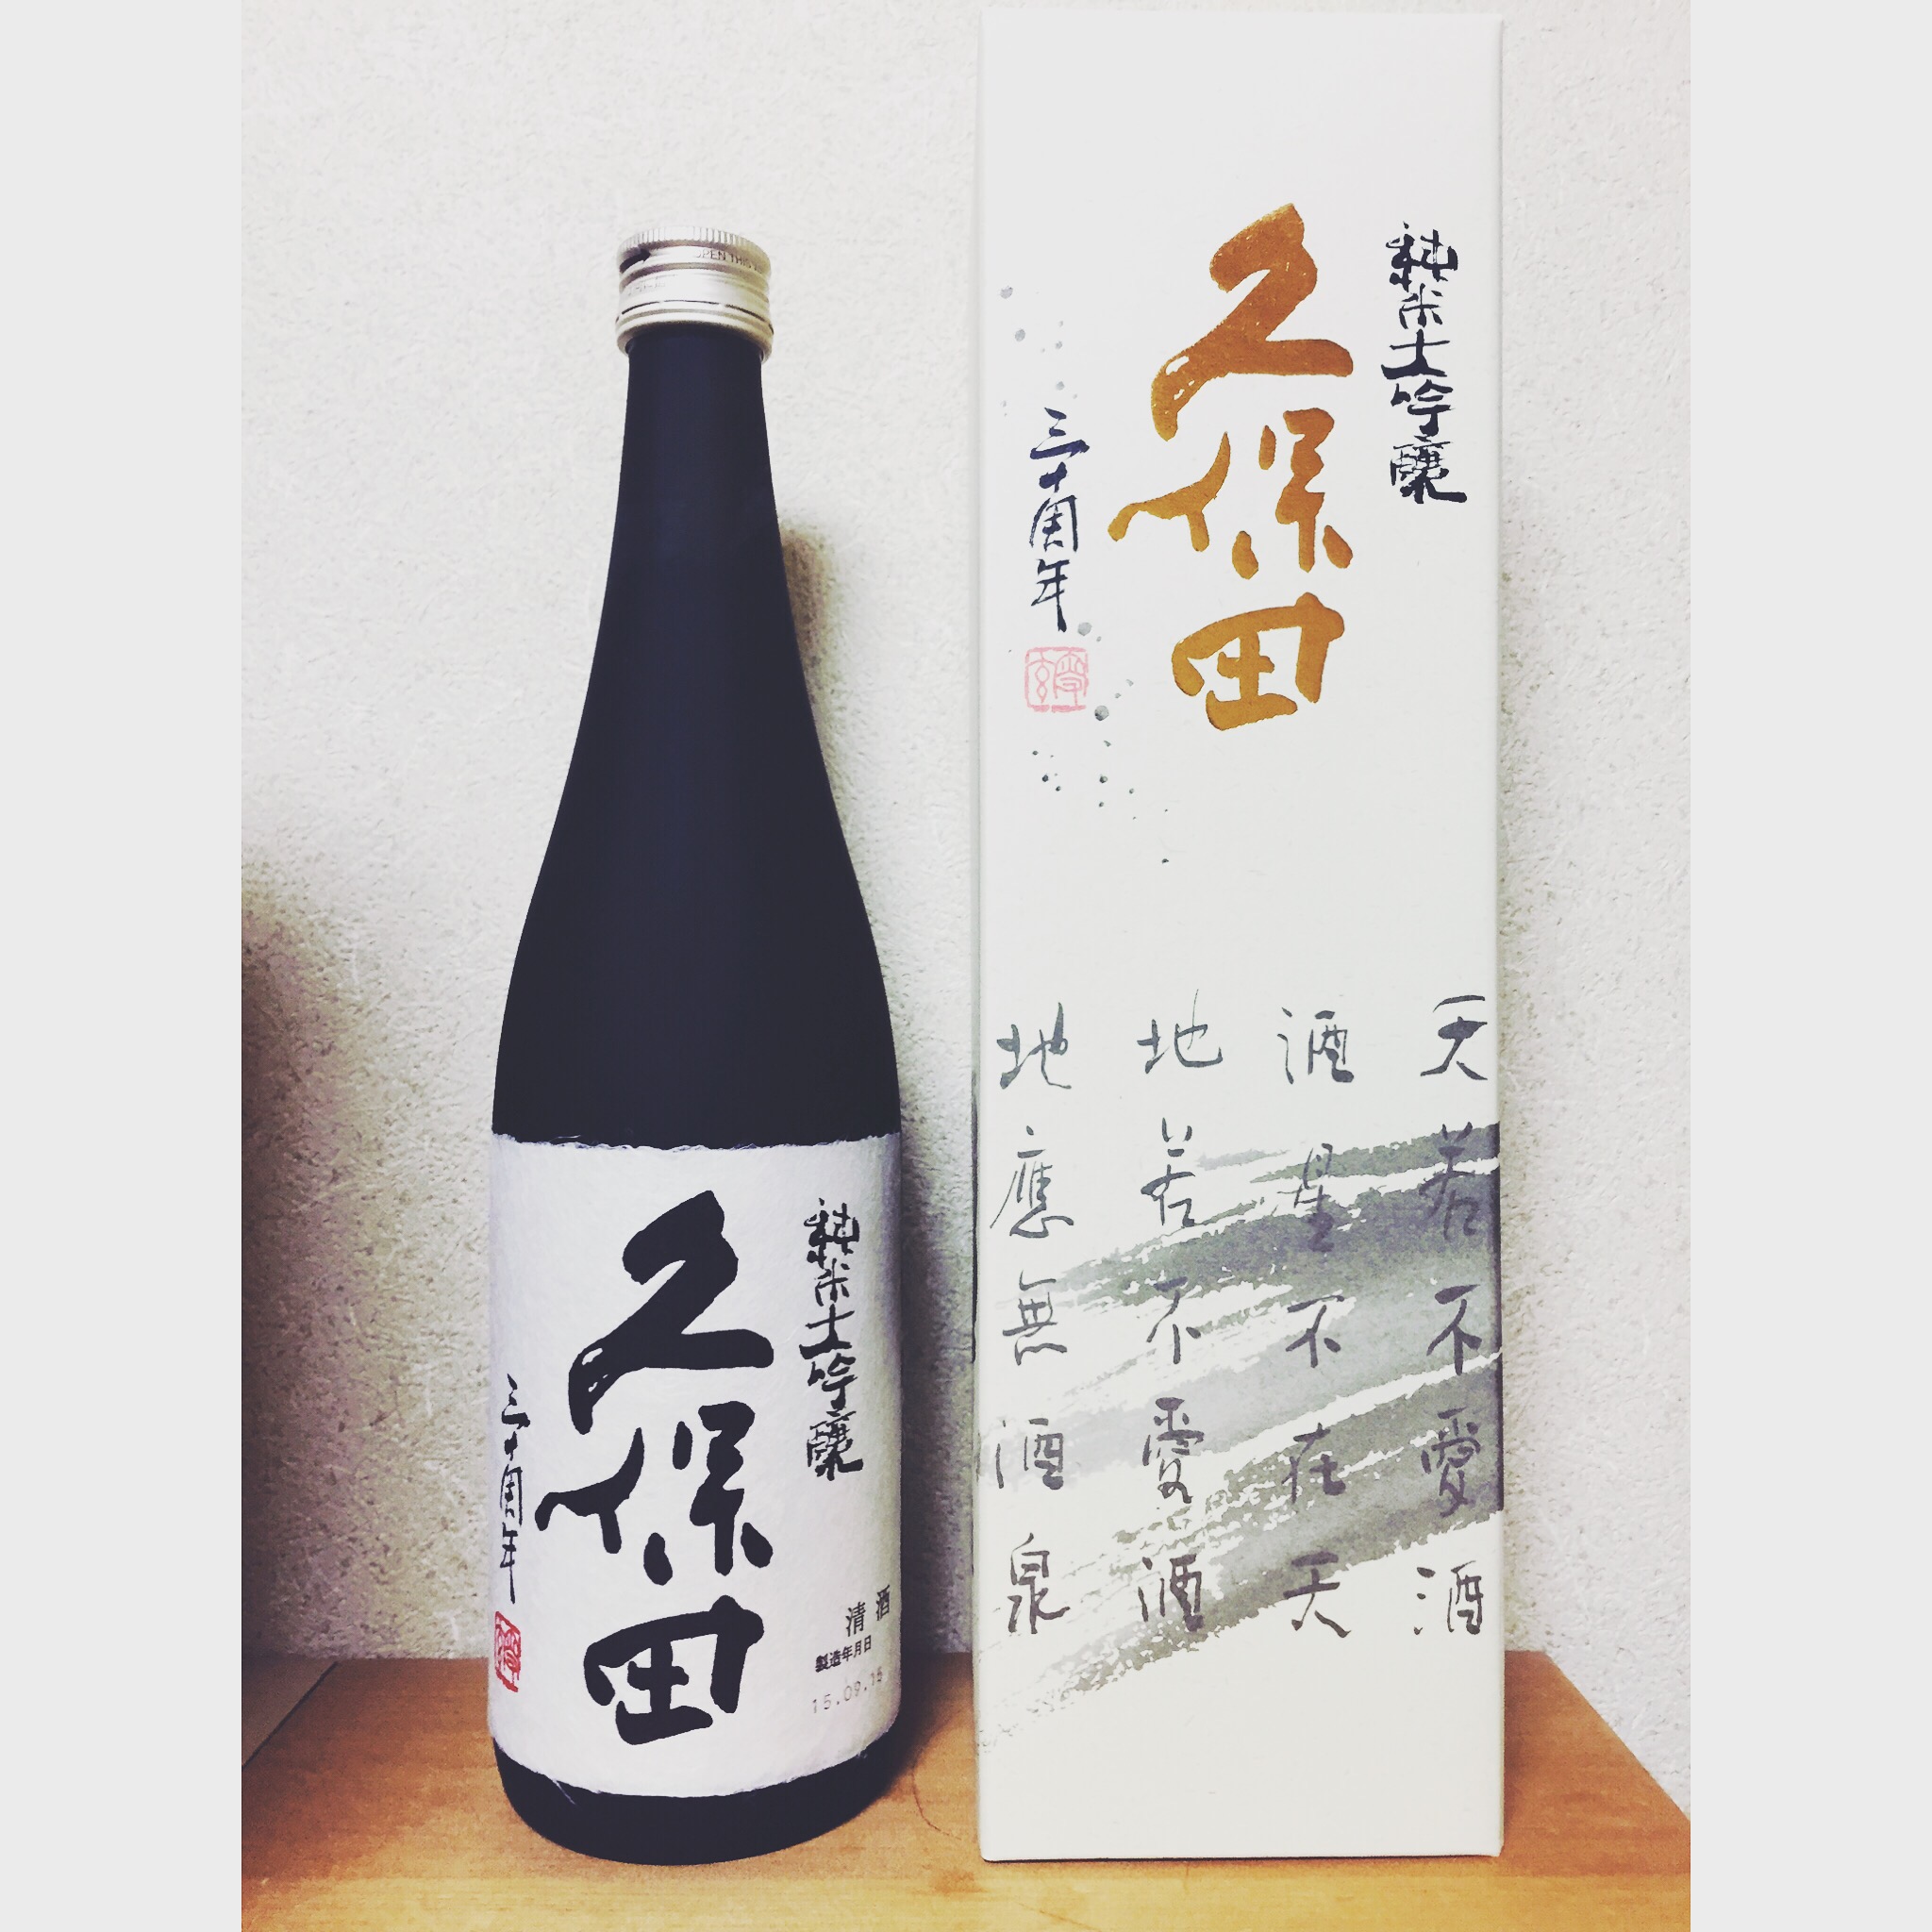 OPEN THIS
純米大吟醸
久保田
三十周年
清酒
製造年月日
15.09.15
純米大吟醸
久保田
三十周年
天若不愛酒
酒星不在天
地若不愛酒
地應無酒泉